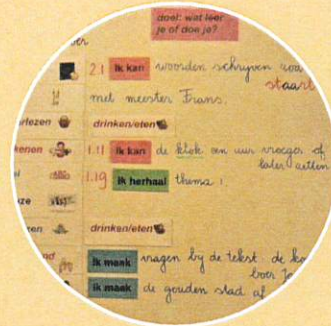 doel: wat leer
je of doe je?
2.1 ik kan woorden schrijven zoa
staart
met meester Frans.
rlezen drinken/eten
kenen 1.11 ik kan de klok een uur vroeger of
later zetten
1.19 ik herhaal thema 1
ze
zen drinken/eten
nd ik maak vragen bij de tekst: de ko
boer Jo
ik maak de gouden stad af